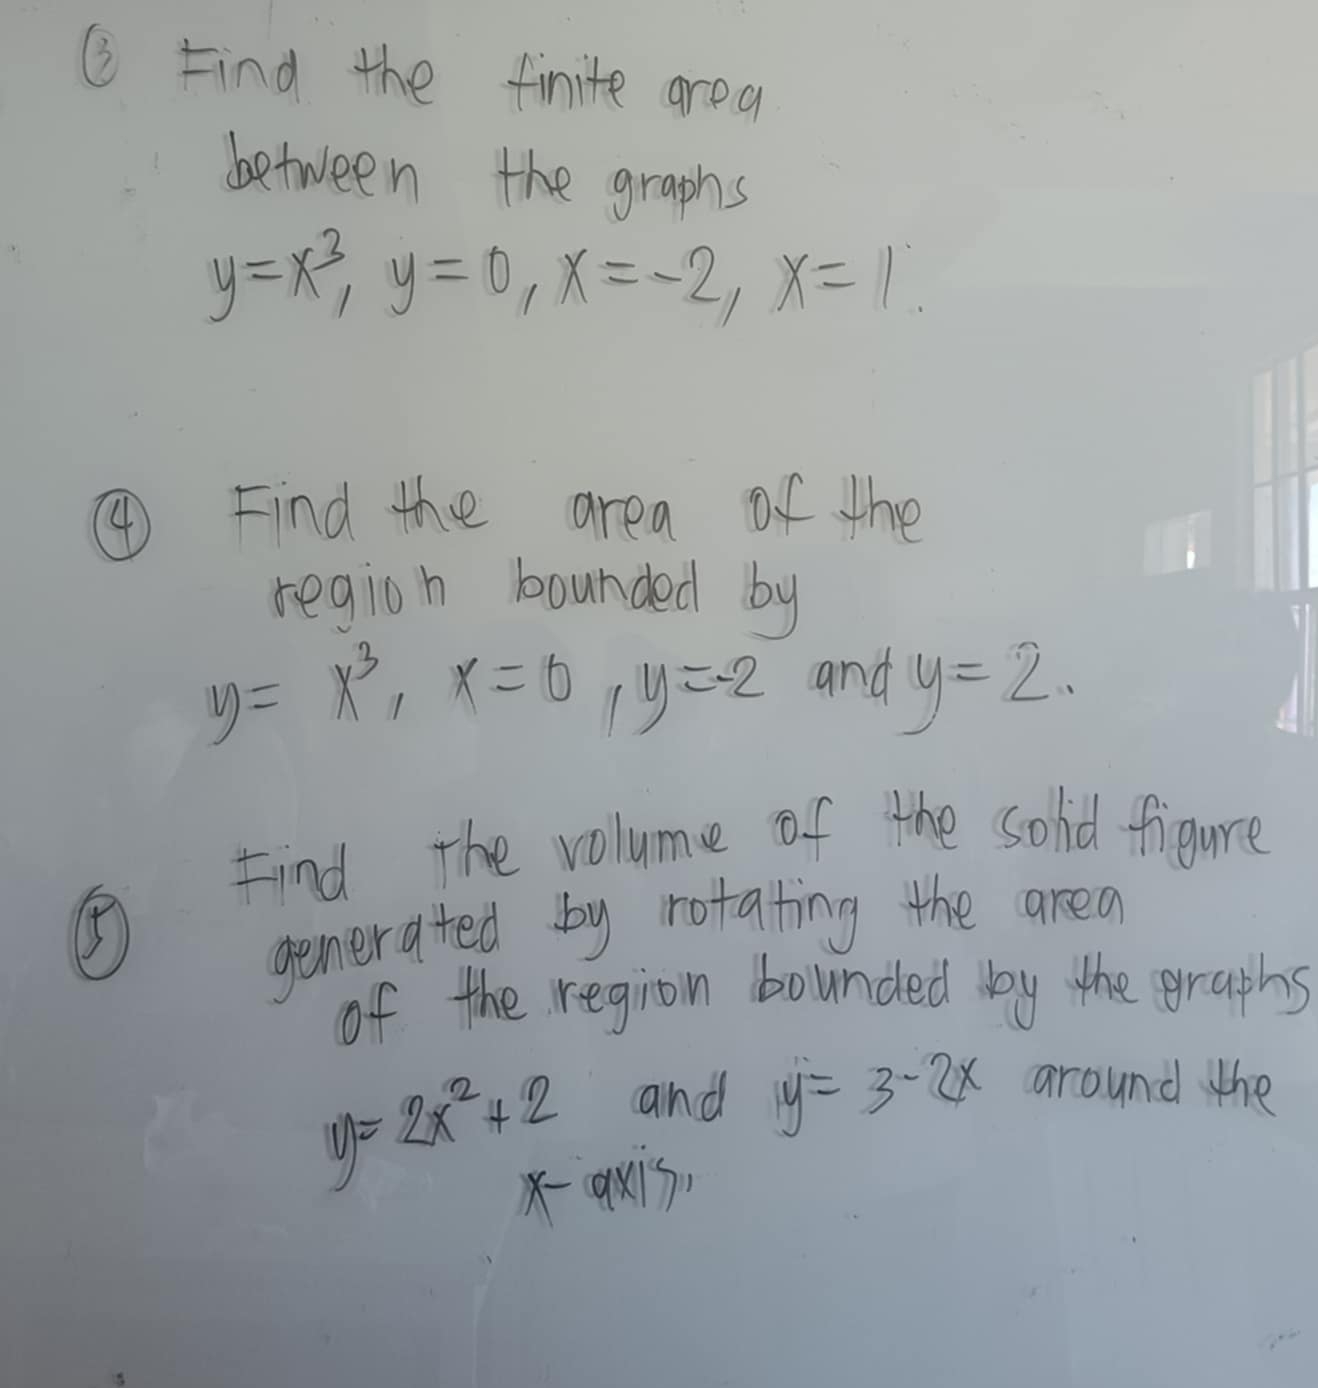 ③ Find the finite area
between the graphs
y=x³, y=0, x=-2, x=1.
④ Find the area of the
region bounded by
y= x³, x=0, y=-2 and y=2.
⑤ Find the volume of the solid figure
generated by rotating the area
of the region bounded by the graphs
y=2x²+2 and y=3-2x around the
x-axis.